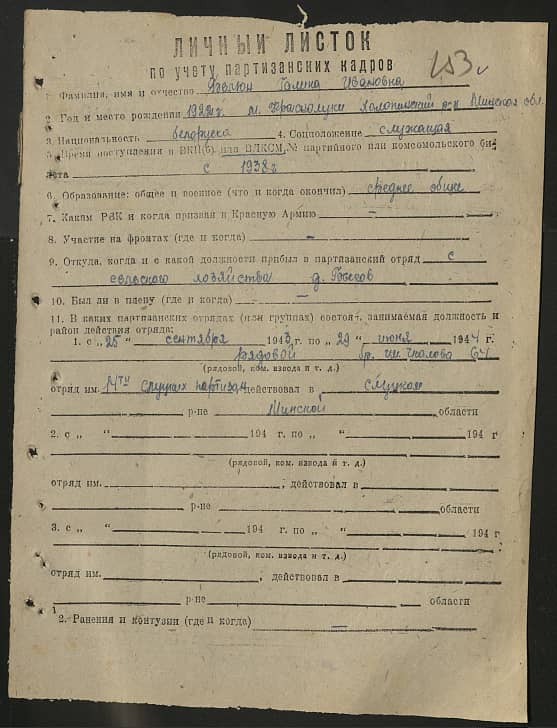 ЛИЧНЫЙ ЛИСТОК
по учету партизанских кадров
153
1. Фамилия, имя и отчество Галина Ивановна
2. Год и место рождения 1922г. м. Краснолуки Холопинский р-н Минская обл.
3. Национальность белоруска 4. Соцположение служащая
5. Время поступления в ВКП(б) или ВЛКСМ, № партийного или комсомольского би-
лета с 1938г
6. Образование: общее и военное (что и когда окончил) среднее общее
7. Каким РВК и когда призван в Красную Армию —
8. Участие на фронтах (где и когда) —
9. Откуда, когда и с какой должности прибыл в партизанский отряд с
сельского хозяйства д.
10. Был ли в плену (где и когда) —
11. В каких партизанских отрядах (или группах) состоял, занимаемая должность и
район действия отряда:
1. с „25 “ сентября 1943 г. по „ 29 “ июня 1944 г.
рядовой бр. им. Чкалова 64
(рядовой, ком. взвода и т. д.)
отряд им. 14ти слуцких партизан действовал в слуцком
р-не Минской области
2. с „ “ 194 г. по „ “ 194 г
(рядовой, ком. взвода и т. д.)
отряд им. , действовал в
р-не области
3. с „ “ 194 г. по „ “ 194 г
(рядовой, ком. взвода и т. д.)
отряд им. , действовал в
р-не области
2. Ранения и контузии (где и когда) —